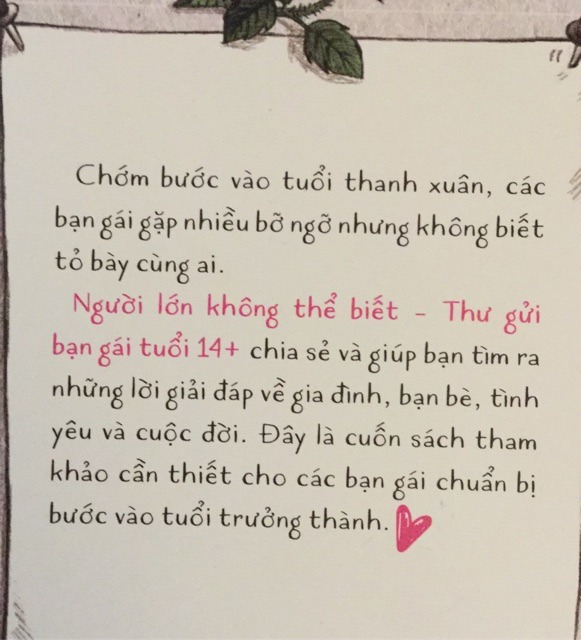 Chớm bước vào tuổi thanh xuân, các
bạn gái gặp nhiều bỡ ngỡ nhưng không biết
tỏ bày cùng ai.
Người lớn không thể biết - Thư gửi
bạn gái tuổi 14+ chia sẻ và giúp bạn tìm ra
những lời giải đáp về gia đình, bạn bè, tình
yêu và cuộc đời. Đây là cuốn sách tham
khảo cần thiết cho các bạn gái chuẩn bị
bước vào tuổi trưởng thành.